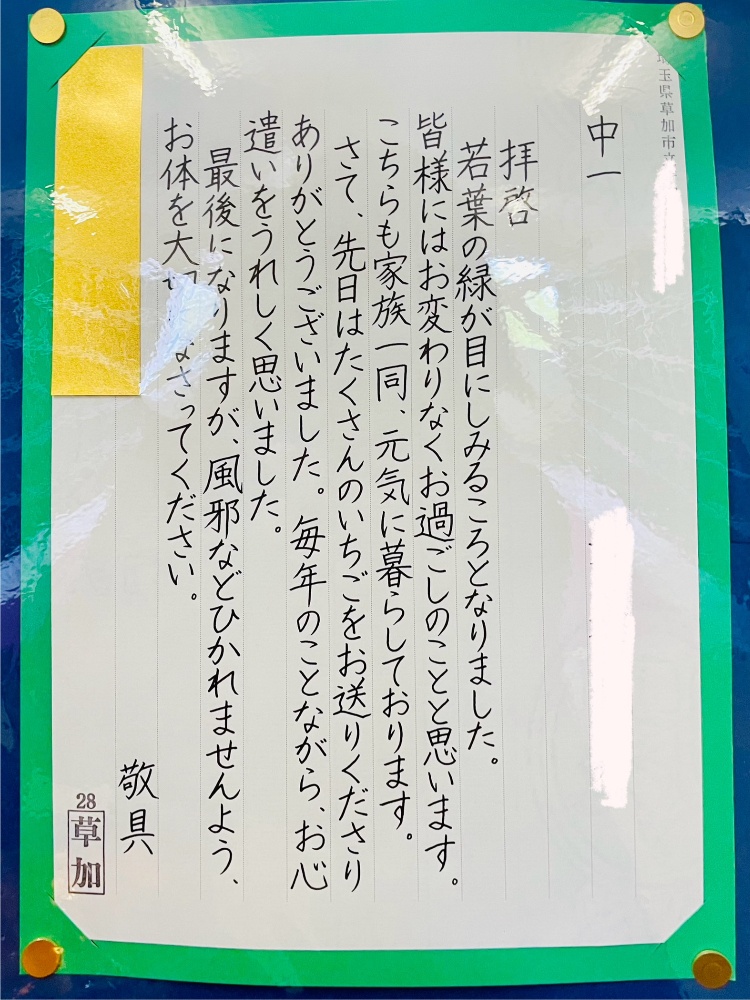 玉県草加市立
中一
拝啓
若葉の緑が目にしみるころとなりました。
皆様にはお変わりなくお過ごしのことと思います。
こちらも家族一同、元気に暮らしております。
さて、先日はたくさんのいちごをお送りくださり
ありがとうございました。毎年のことながら、お心
遣いをうれしく思いました。
最後になりますが、風邪などひかれませんよう、
お体を大切になさってください。
敬具
28
草加